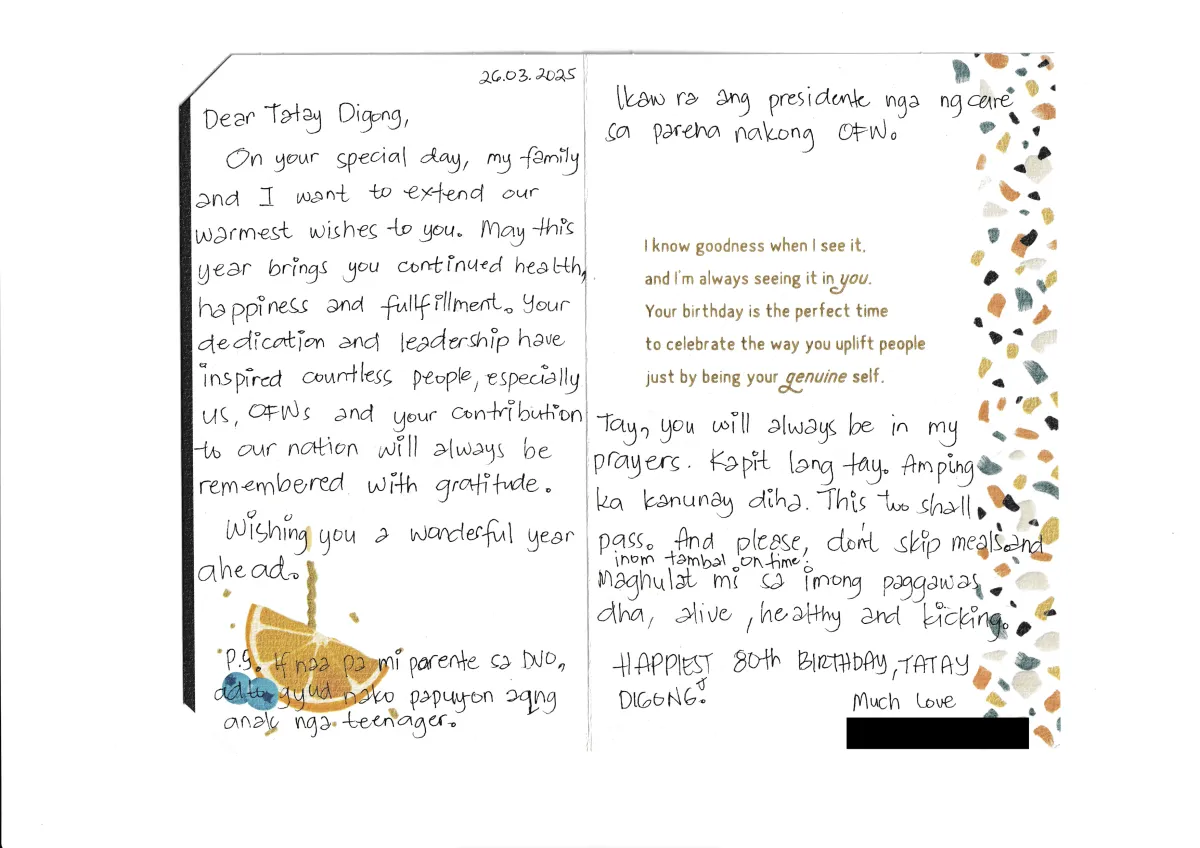 26.03.2025
Dear Tatay Digong,
On your special day, my family
and I want to extend our
warmest wishes to you. May this
year brings you continued health,
happiness and fullfillment. Your
dedication and leadership have
inspired countless people, especially
us, OFWs and your contribution
to our nation will always be
remembered with gratitude.
Wishing you a wonderful year
ahead.
P.S. If naa pa mi parente sa DVO,
adto gyud nako papuyon aqng
anak nga teenager.
Ikaw ra ang presidente nga ng care
sa pareha nakong OFW.
I know goodness when I see it,
and I'm always seeing it in you.
Your birthday is the perfect time
to celebrate the way you uplift people
just by being your genuine self.
Tay, you will always be in my
prayers. Kapit lang tay. Amping
ka kanunay diha. This two shall
pass. And please, don't skip meals and
inom tambal on time.
Maghulat mi sa imong paggawas
dha, alive, healthy and kicking.
HAPPIEST 80th BIRTHDAY, TATAY
DIGONG!
Much Love